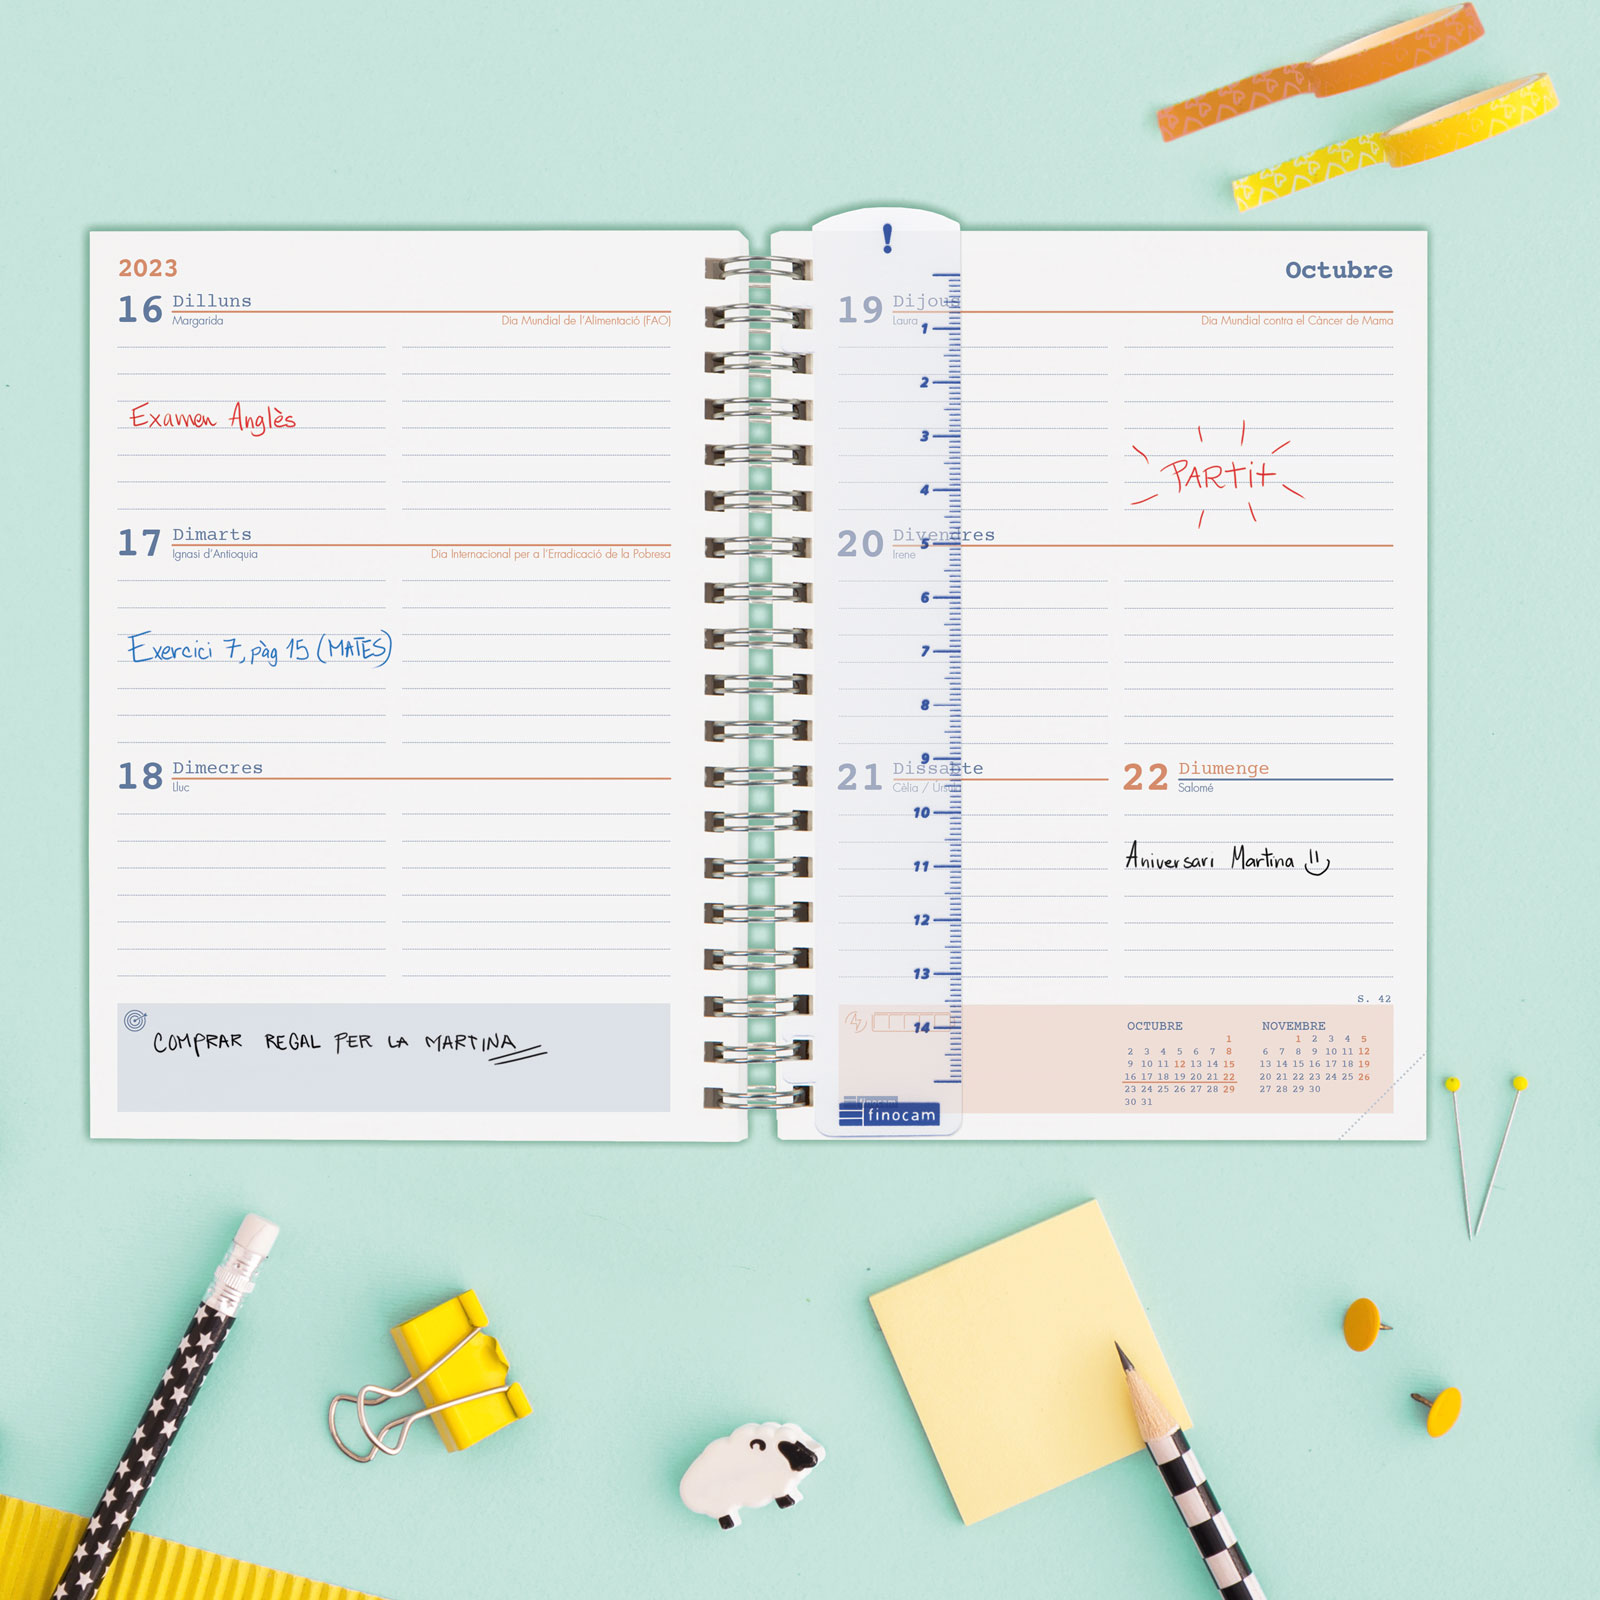 2023
16 Dilluns
Margarida Dia Mundial de l'Alimentació (FAO)
Examen Anglès
17 Dimarts
Ignasi d'Antioquia Dia Internacional per a l'Erradicació de la Pobresa
Exercici 7, pàg 15 (MATES)
18 Dimecres
Lluc
COMPRAR REGAL PER LA MARTINA
!
Octubre
19 Dijous
Laura Dia Mundial contra el Càncer de Mama
PARTIT
20 Divendres
Irene
21 Dissabte
Cèlia / Úrsula
22 Diumenge
Salomé
Aniversari Martina
1
2
3
4
5
6
7
8
9
10
11
12
13
14
finocam
S. 42
OCTUBRE
1
2 3 4 5 6 7 8
9 10 11 12 13 14 15
16 17 18 19 20 21 22
23 24 25 26 27 28 29
30 31
NOVEMBRE
1 2 3 4 5
6 7 8 9 10 11 12
13 14 15 16 17 18 19
20 21 22 23 24 25 26
27 28 29 30